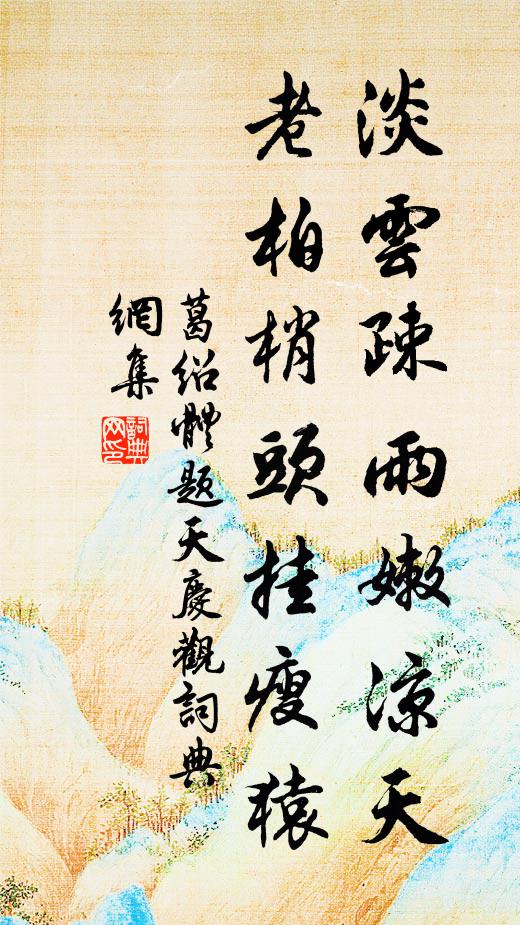 淡雲疎雨嫩涼天
老柏梢頭挂瘦猿
葛绍體题天慶觀詞典
網集
詞典
网印